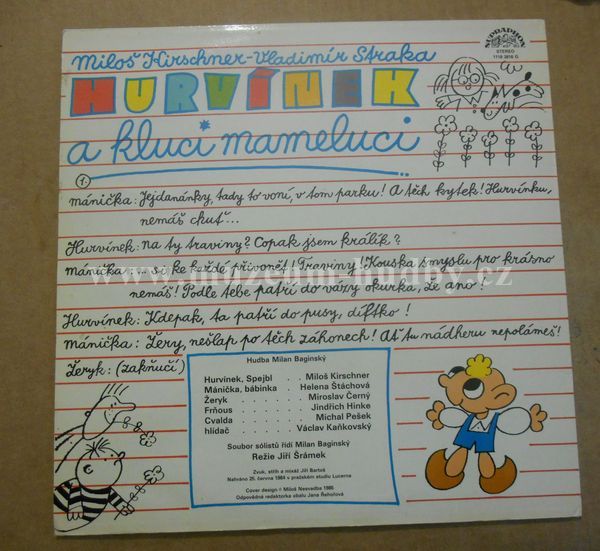 SUPRAPHON
STEREO
1118 3816 G
Miloš Kirschner - Vladimír Straka
HURVÍNEK
a kluci mameluci
1.
Mánička: Jejdanánky, tady to voní, v tom parku! A těch kytek! Hurvínku,
nemáš chuť...
Hurvínek: Na ty traviny? Copak jsem králík?
Mánička: si ke každé přivonět! Traviny! Kouska smyslu pro krásno
nemáš! Podle tebe patří do vázy okurka, že ano!
Hurvínek: Kdepak, ta patří do pusy, díftko!
Mánička: Žery, nešlap po těch záhonech! Ať tu nádheru nepolámeš!
Žeryk: (zakňučí)
Hudba Milan Baginský
Hurvínek, Spejbl . . Miloš Kirschner
Mánička, bábinka . Helena Štáchová
Žeryk . . . . . . . Miroslav Černý
Frňous . . . . . . . Jindřich Hinke
Cvalda . . . . . . . Michal Pešek
hlídač . . . . . . Václav Kaňkovský
Soubor sólistů řídí Milan Baginský
Režie Jiří Šrámek
Zvuk, střih a mixáž Jiří Bartoš
Nahráno 25. června 1984 v pražském studiu Lucerna
Cover design © Miloš Nesvadba 1986
Odpovědná redaktorka obalu Jana Řehořová